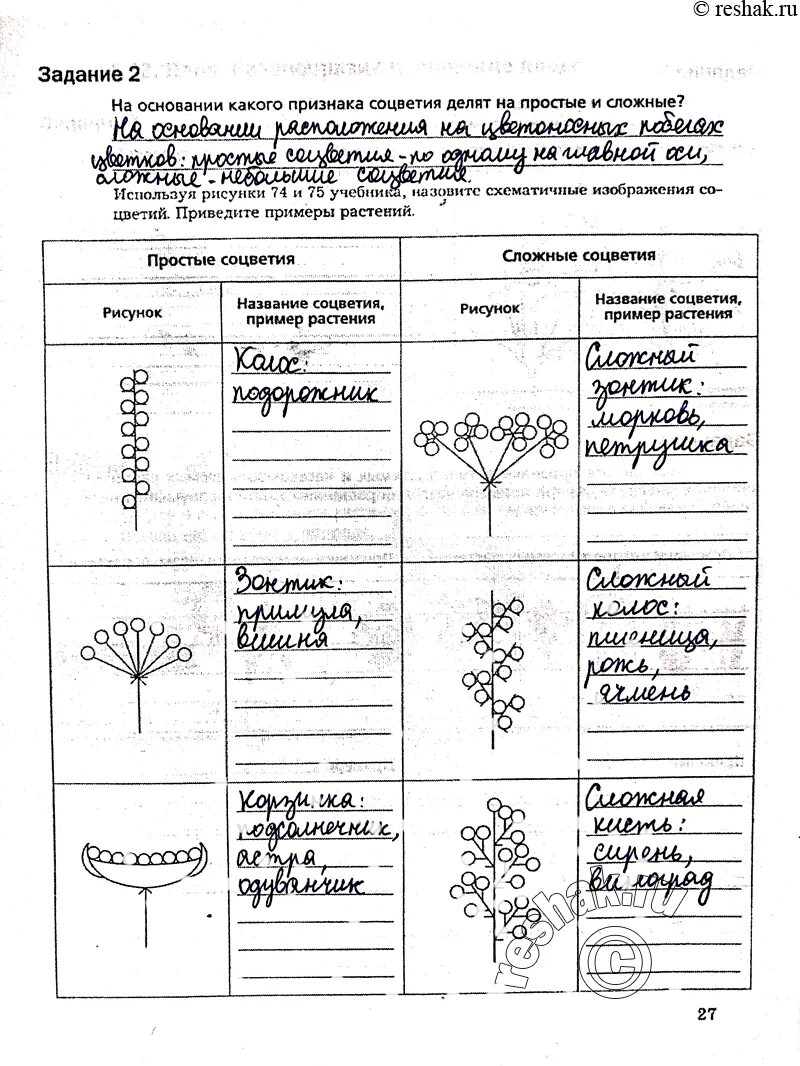 © reshak.ru
Задание 2
На основании какого признака соцветия делят на простые и сложные?
На основании расположения на цветоносных побегах
цветков: простые соцветия - по одному на главной оси,
сложные - небольшие соцветия.
Используя рисунки 74 и 75 учебника, назовите схематичные изображения со-
цветий. Приведите примеры растений.
Простые соцветия
Сложные соцветия
Рисунок
Название соцветия,
пример растения
Рисунок
Название соцветия,
пример растения
Колос:
подорожник
Сложный
зонтик:
морковь,
петрушка
Зонтик:
примула,
вишня
Сложный
колос:
пшеница,
рожь,
ячмень
Корзинка:
подсолнечник,
астра,
одуванчик
Сложная
кисть:
сирень,
виноград
reshak.ru
©
27